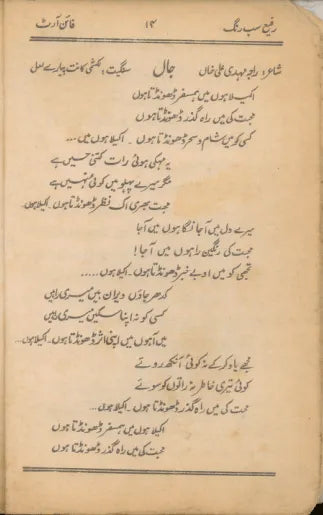 رفیع سب رنگ ۱۴ فائن آرٹ
شاعر: راجہ مہدی علی خاں جال سنگیت: لکشمی کانت پیارے لعل
اکیلا ہوں میں ہمسفر ڈھونڈتا ہوں
محبت کی میں راہ گذر ڈھونڈتا ہوں
کسی کو میں شام و سحر ڈھونڈتا ہوں ۔ اکیلا ہوں میں ...
یہ مہکی ہوئی رات کتنی حسیں ہے
مگر میرے پہلو میں کوئی نہیں ہے
محبت بھری اک نظر ڈھونڈتا ہوں ۔ اکیلا ہوں...
میرے دل میں آجا نگاہوں میں آجا
محبت کی رنگین راہوں میں آجا !
تجھی کو میں او بے خبر ڈھونڈتا ہوں ۔ اکیلا ہوں......
کدھر جاؤں ویران ہیں میری راہیں
کسی کو نہ اپنا سکیں میری آہیں
میں آہوں میں اپنی اثر ڈھونڈتا ہوں ۔ اکیلا ہوں...
مجھے یاد کر کے نہ کوئی آنکھ روئے
کوئی تیری خاطر نہ راتوں کو سوئے
محبت کی میں راہ گذر ڈھونڈتا ہوں ۔ اکیلا ہوں...
اکیلا ہوں میں ہمسفر ڈھونڈتا ہوں
محبت کی میں راہ گذر ڈھونڈتا ہوں